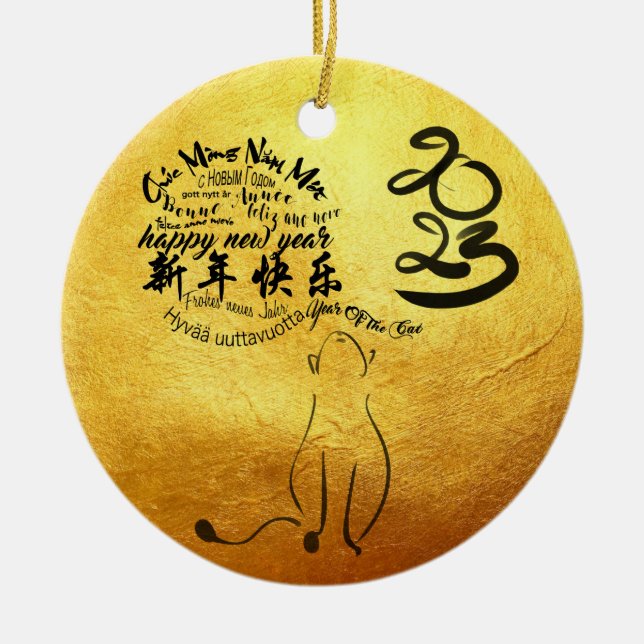 Chúc Mừng Năm Mới
с Новым Годом
gott nytt år Année
Bonne feliz ano novo
felice anno nuovo
happy new year
新年快乐
Frohes neues Jahr
Year Of The Cat
Hyvää uuttavuotta
2023